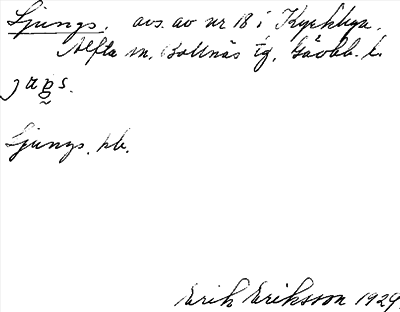 Ljungs. avs. av nr 18 i Kyrkbyn.
Alfta sn, Bollnäs tg, Gävlb. l.
Ljungs. hb.
Erik Eriksson 1929.